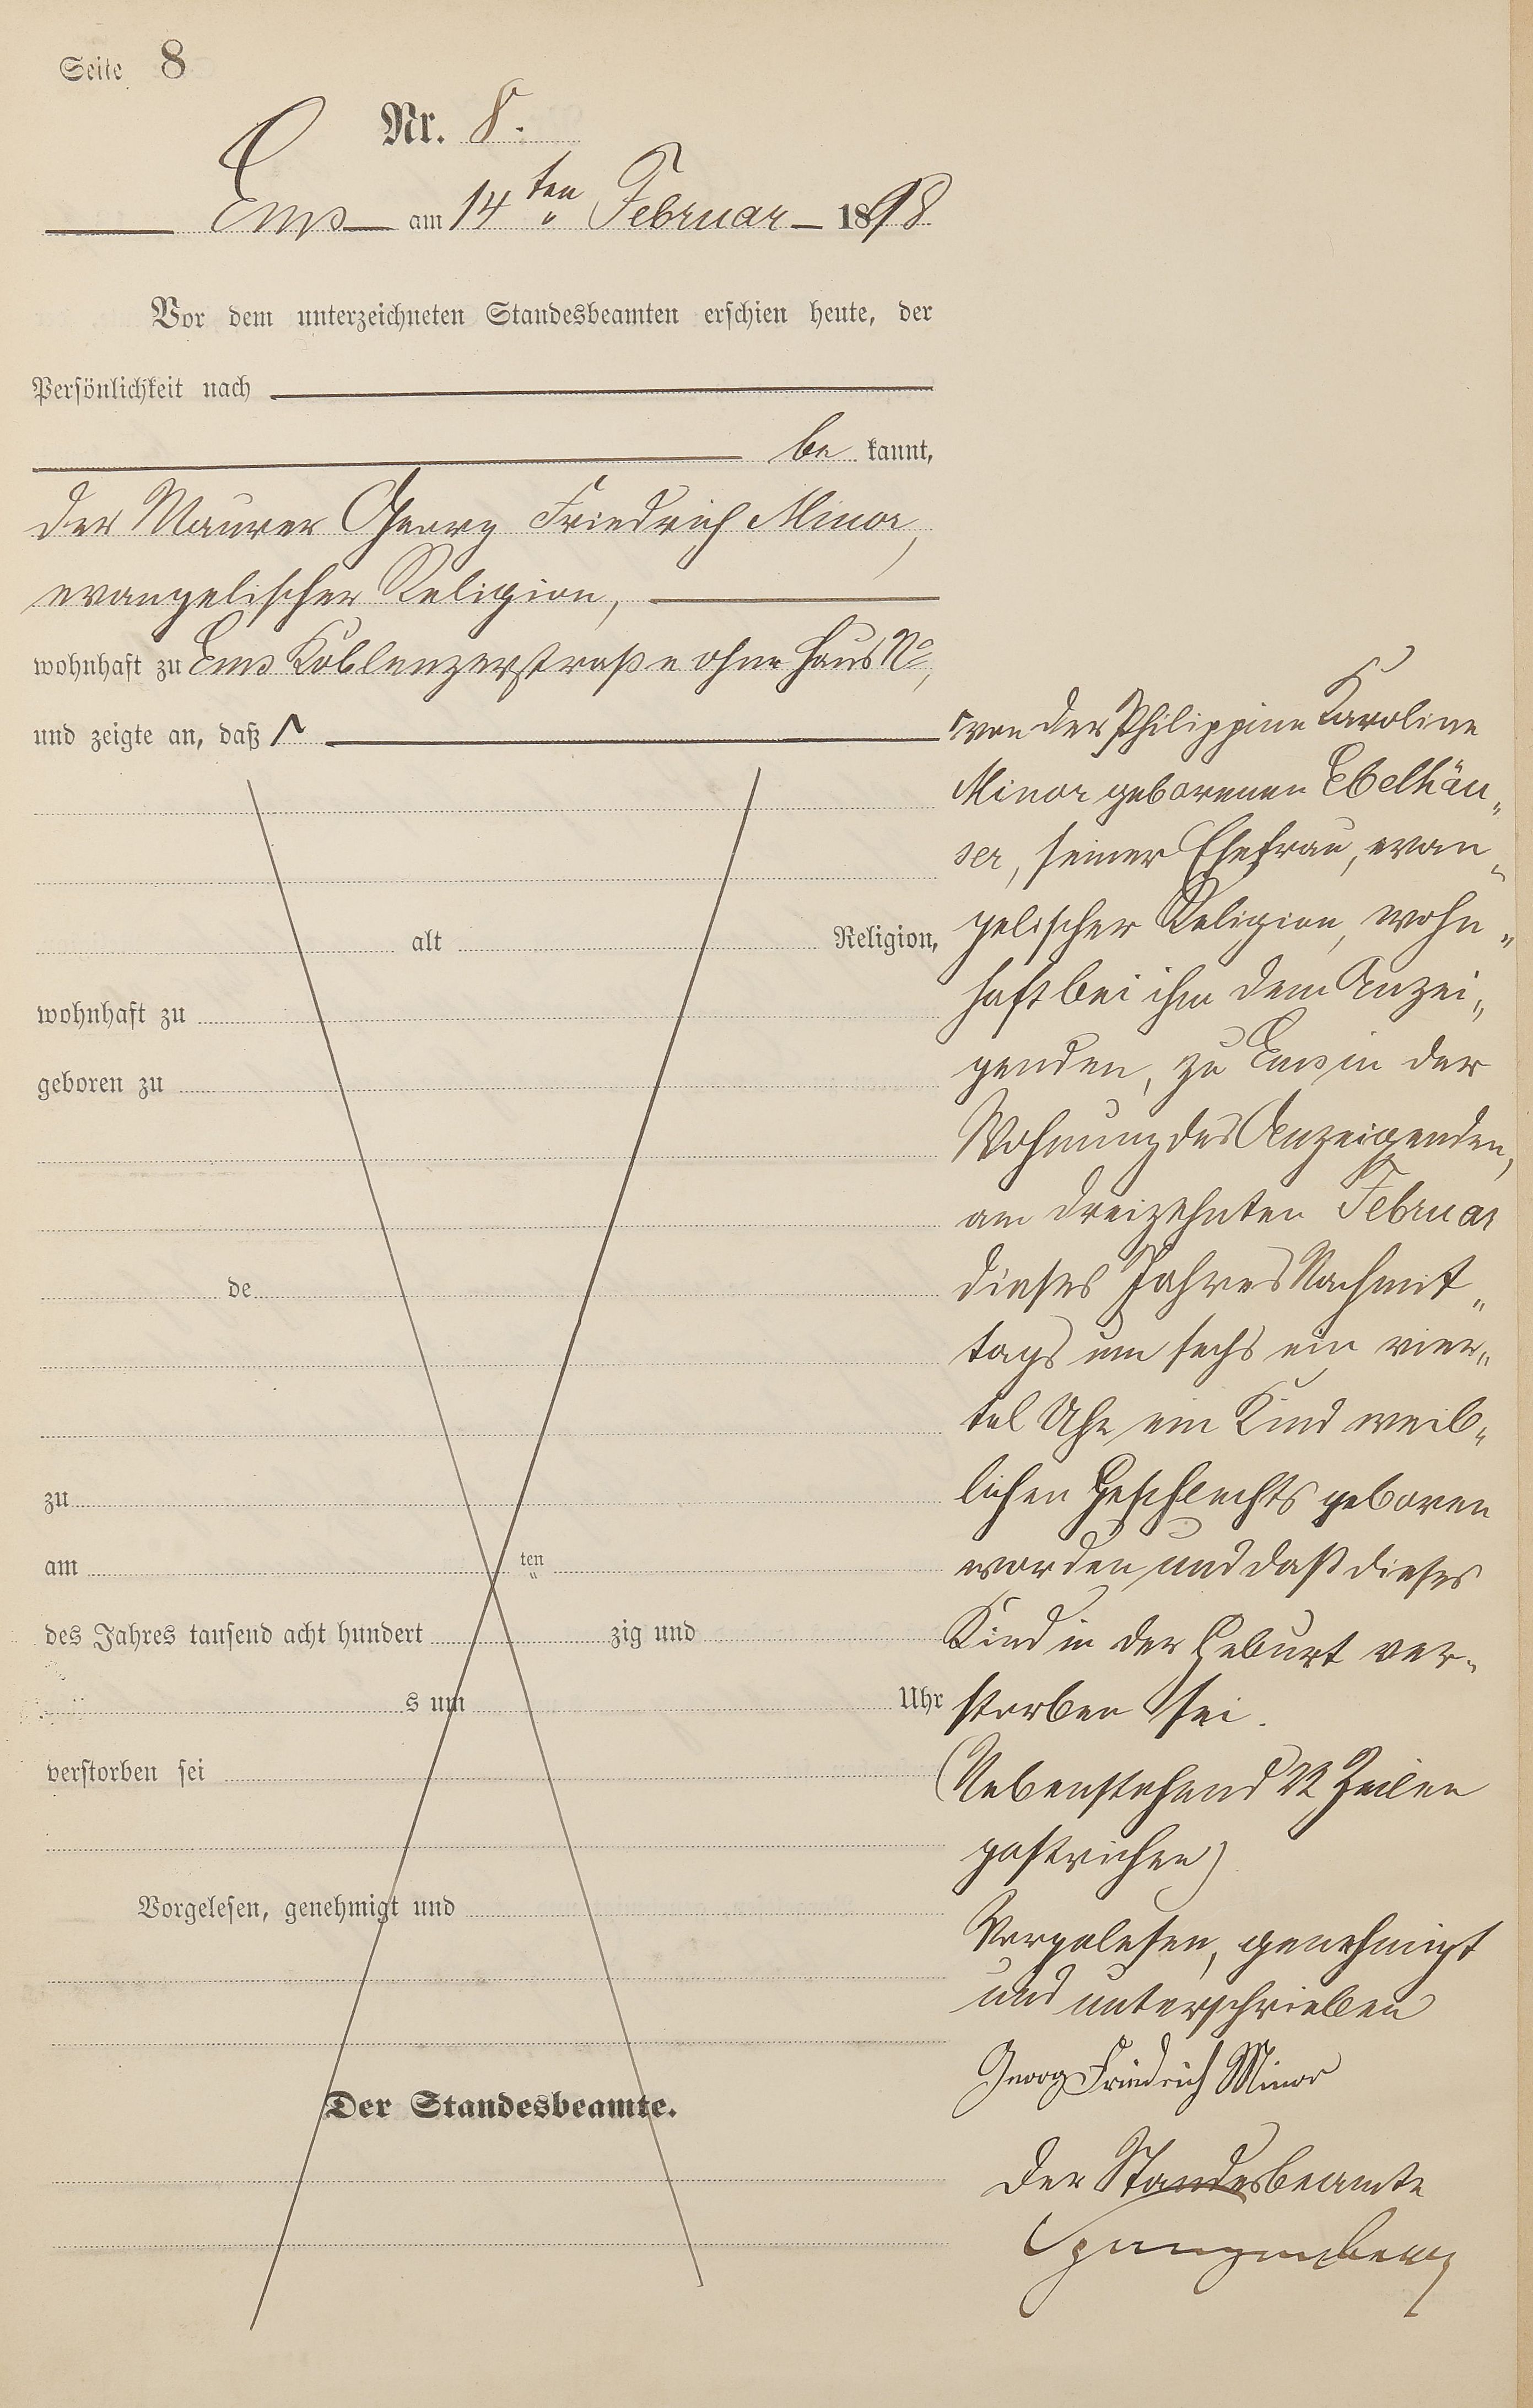 Seite 8
Nr. 8.
Ems am 14ten Februar 1898
Vor dem unterzeichneten Standesbeamten erschien heute, der
Persönlichkeit nach
be kannt,
der Maurer Georg Friedrich Minor,
evangelischer Religion,
wohnhaft zu Ems Koblenzerstraße ohne Haus No,
und zeigte an, daß
alt Religion,
wohnhaft zu
geboren zu
de
zu
am ten
des Jahres tausend acht hundert zig und
s um Uhr
verstorben sei
Vorgelesen, genehmigt und
Der Standesbeamte.
von der Philippine Karoline
Minor geborenen Ebelhäu„
ser, seiner Ehefrau, evan„
gelischer Religion, wohn„
haft bei ihm dem Anzei„
genden, zu Ems in der
Wohnung des Anzeigenden,
am dreizehnten Februar
dieses Jahres Nachmit„
tags um sechs ein vier„
tel Uhr ein Kind weib„
lichen Geschlechts geboren
worden und daß dieses
Kind in der Geburt ver„
storben sei.
(Nebenstehend 22 Zeilen
gestrichen)
Vorgelesen, genehmigt
und unterschrieben
Georg Friedrich Minor
Der Standesbeamte
Spangenberg